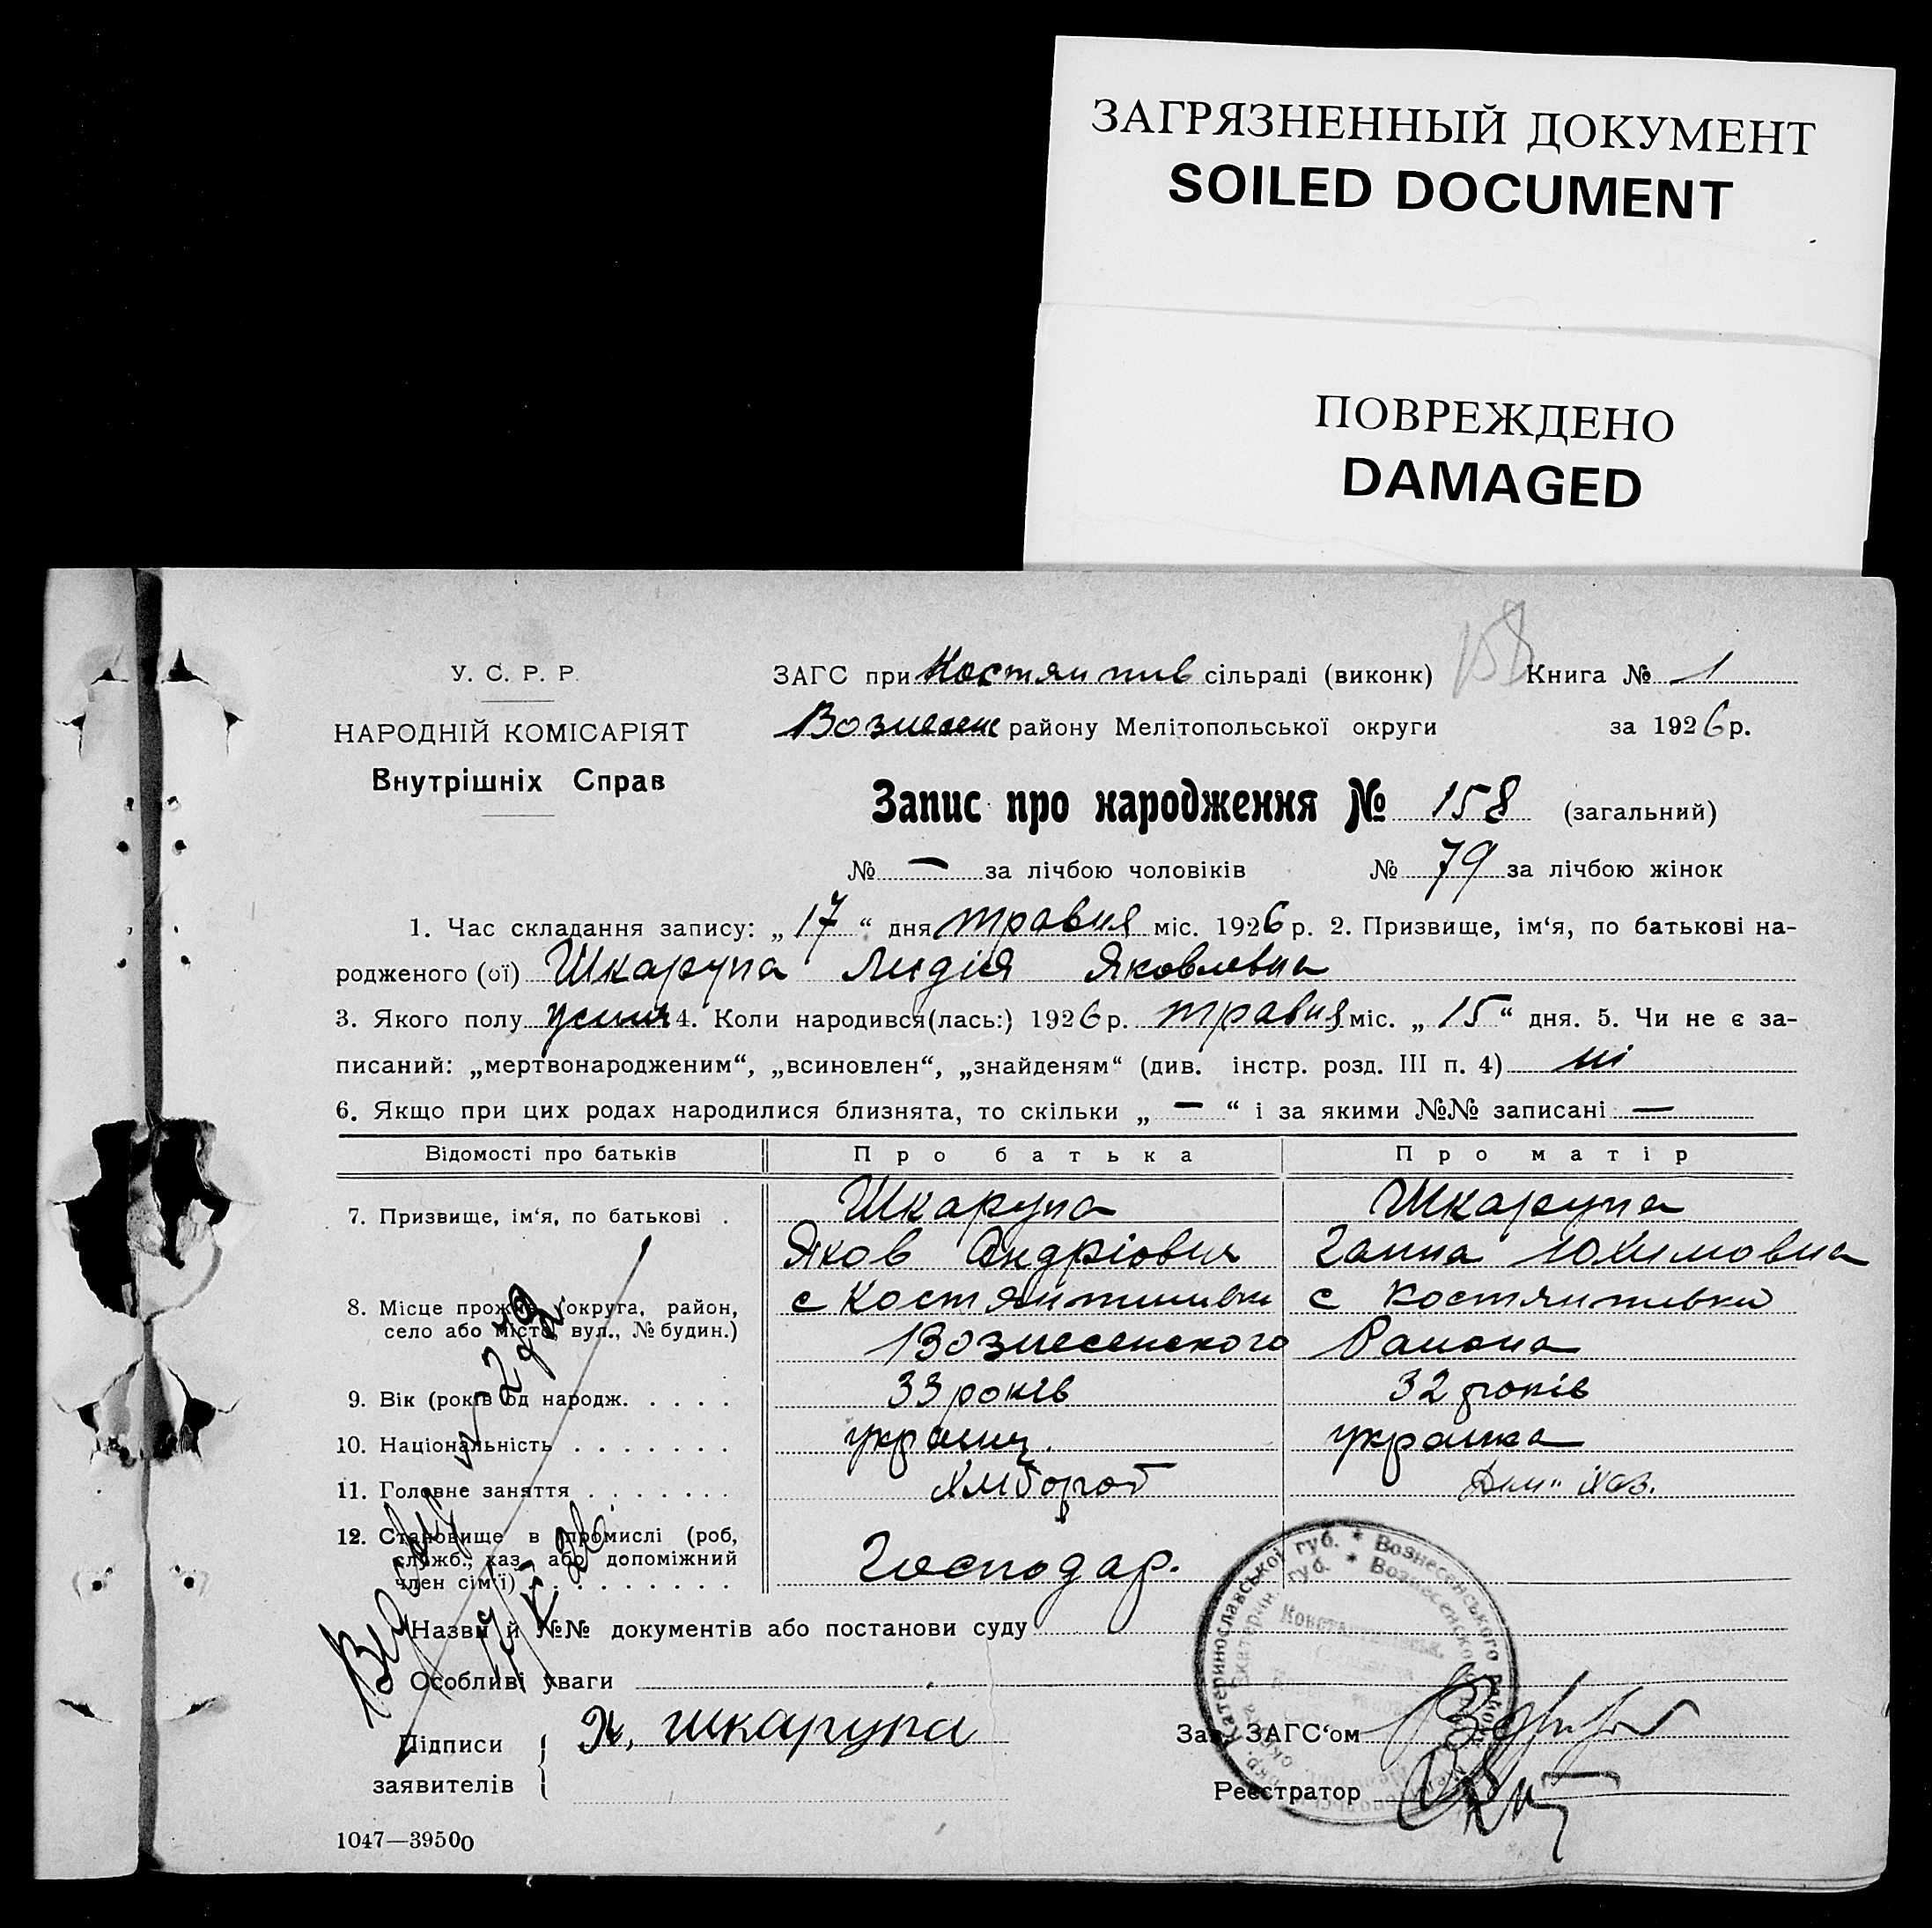 ЗАГРЯЗНЕННЫЙ ДОКУМЕНТ
SOILED DOCUMENT
ПОВРЕЖДЕНО
DAMAGED
158
У. С. Р. Р.
НАРОДНІЙ КОМІСАРІЯТ
Внутрішніх Справ
ЗАГС при Костянтив сільраді (виконк) Книга № 1
Вознесен району Мелітопольської округи за 1926 р.
Запис про народження № 158 (загальний)
№ — за лічбою чоловіків № 79 за лічбою жінок
1. Час складання запису: „17“ дня травня міс. 1926 р. 2. Призвище, ім‘я, по батькові на-
родженого (ої) Шкарупа Лидія Яковлевна
3. Якого полу 4. Коли народився(лась:) 1926 р. травня міс. „15“ дня. 5. Чи не є за-
писаний: „мертвонародженим“, „всиновлен“, „знайденям“ (див. інстр. розд. III п. 4) ні
6. Якщо при цих родах народилися близнята, то скільки „—“ і за якими №№ записані —
Відомості про батьків Про батька Про матір
7. Призвище, ім‘я, по батькові . Шкарупа Шкарупа
Яков Андріович Ганна Юхимовна
8. Місце прожив. (округа, район, с Костянтинивки с Костянтивки
село або місто, вул., № будин.) Вознесенского Района
9. Вік (років од народж. . . . . 33 років 32 років
10. Національність . . . . . . . украинц. украинка
11. Головне заняття . . . . . . . Хлібороб Дом. хоз.
12. Становище в промислі (роб,
служб., хаз. або допоміжний Господар.
член сім‘ї) . . . . . . . . .
Назви й №№ документів або постанови суду
Особливі уваги
Підписи Я, шкарупа Зав. ЗАГС‘ом
заявителів Реєстратор
Катеринославської губ. * Вознесенського район
1047—39500